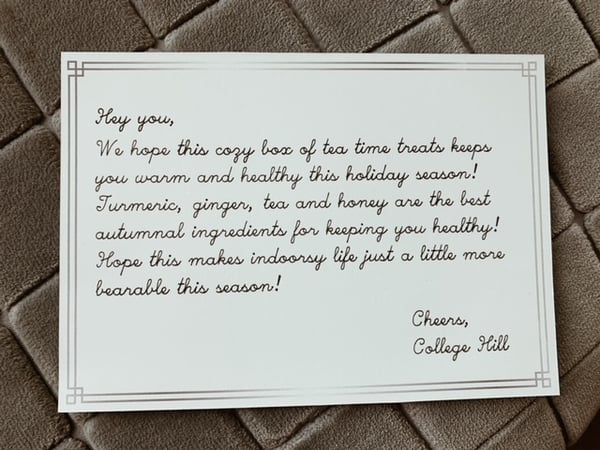 Hey you,
We hope this cozy box of tea time treats keeps
you warm and healthy this holiday season!
Turmeric, ginger, tea and honey are the best
autumnal ingredients for keeping you healthy!
Hope this makes indoorsy life just a little more
bearable this season!
Cheers,
College Hill